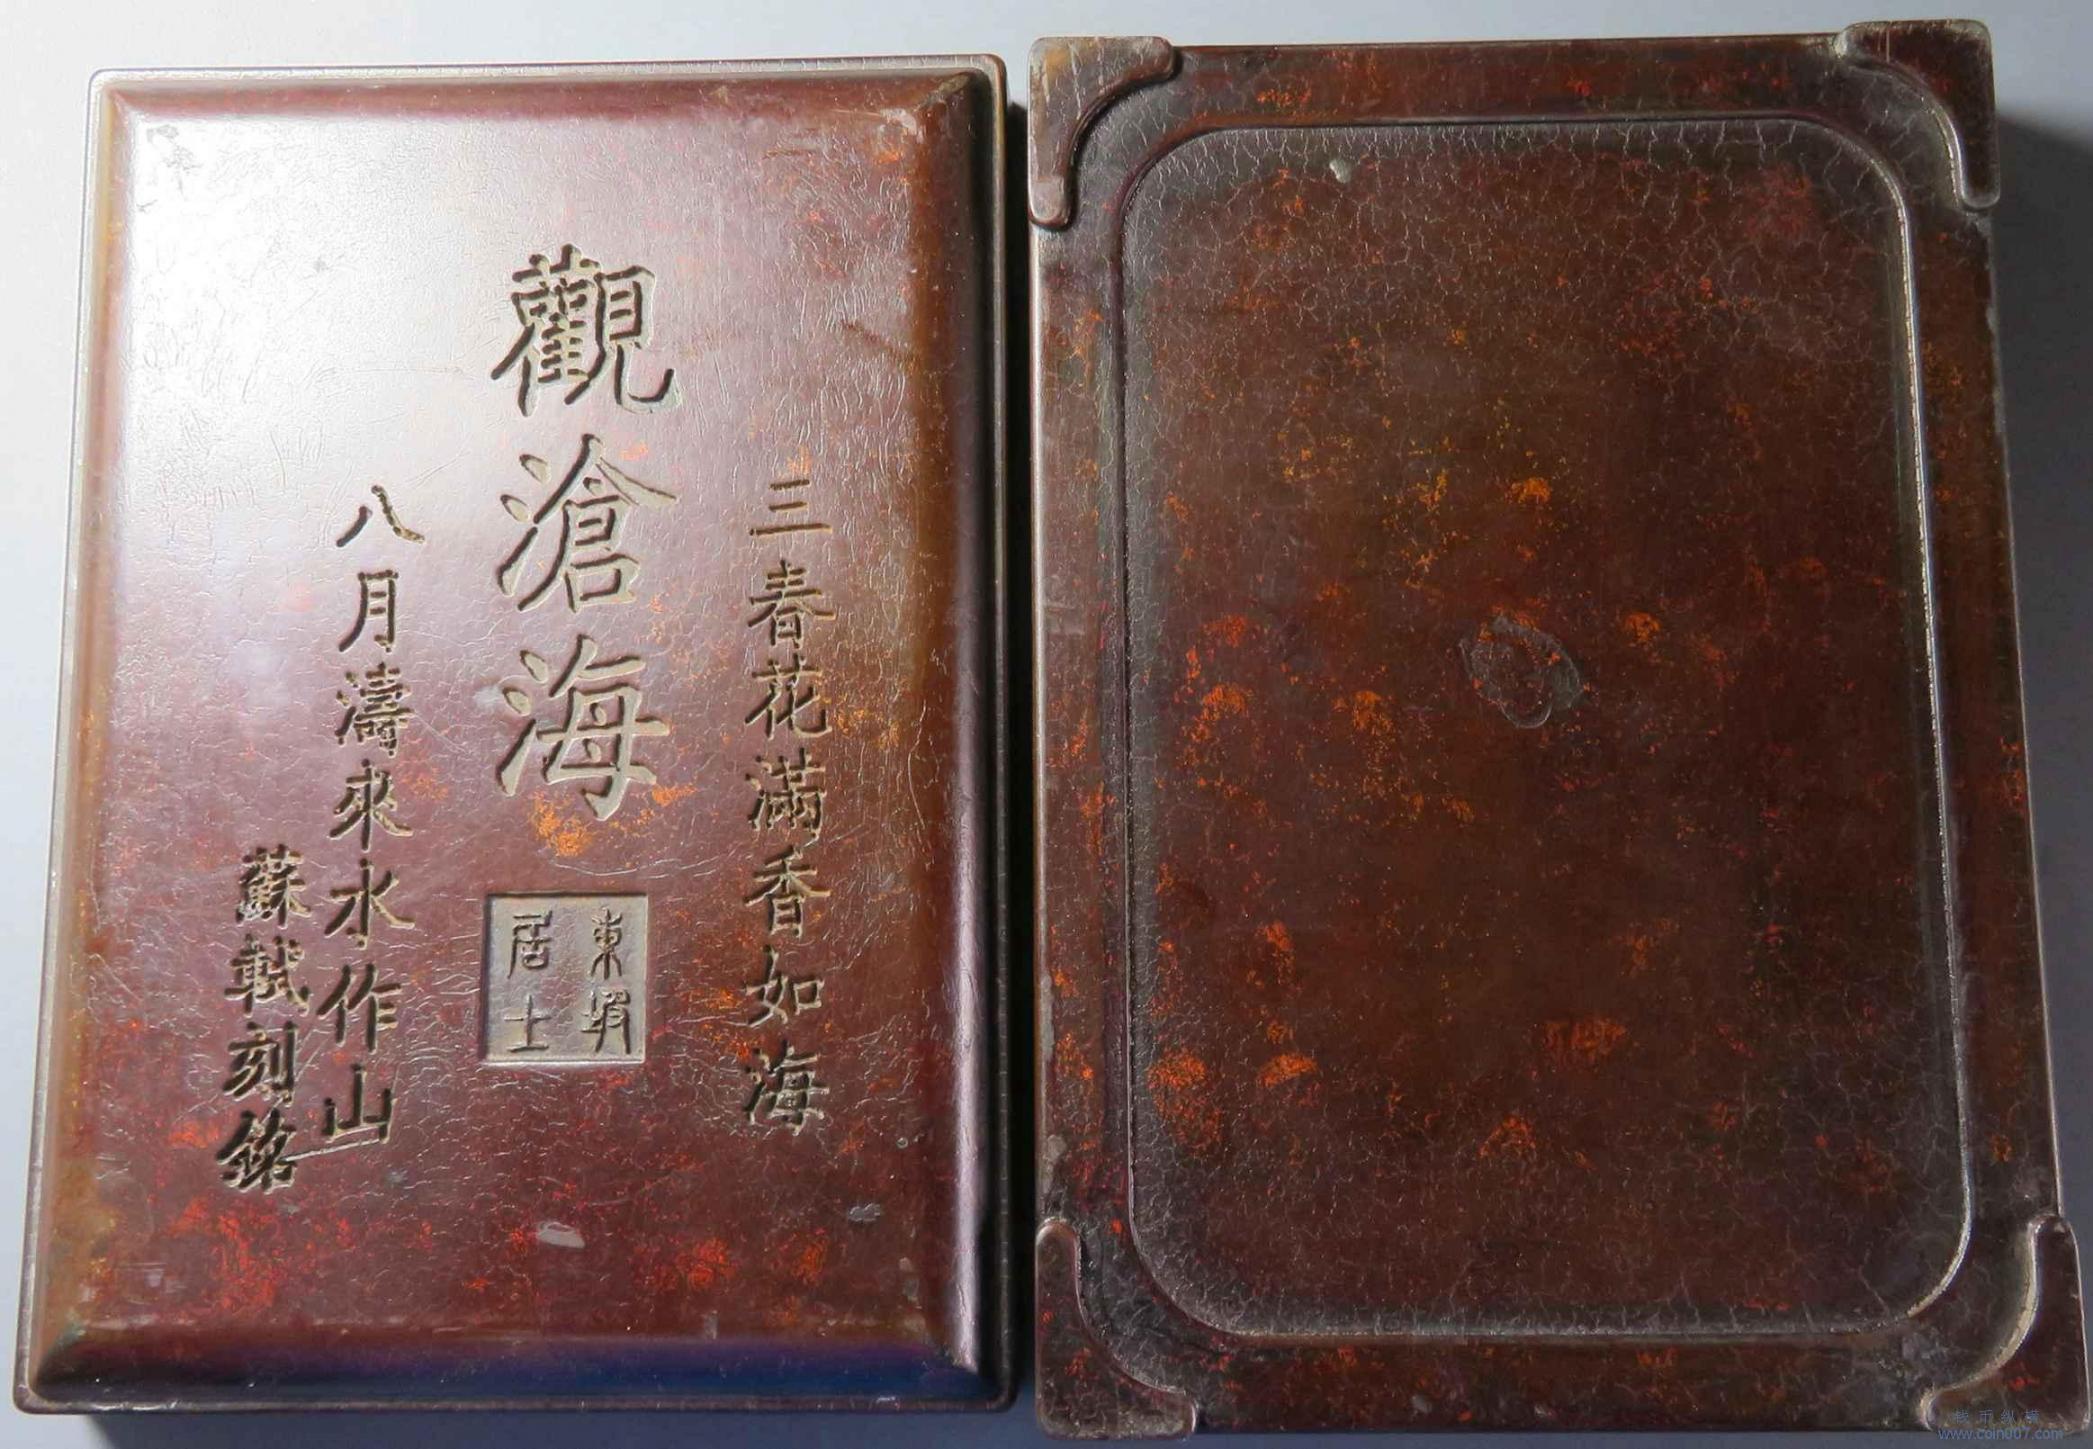 三春花滿香如海
觀滄海
東坡
居士
八月濤來水作山
蘇軾刻銘
钱币纵横
www.coin007.com